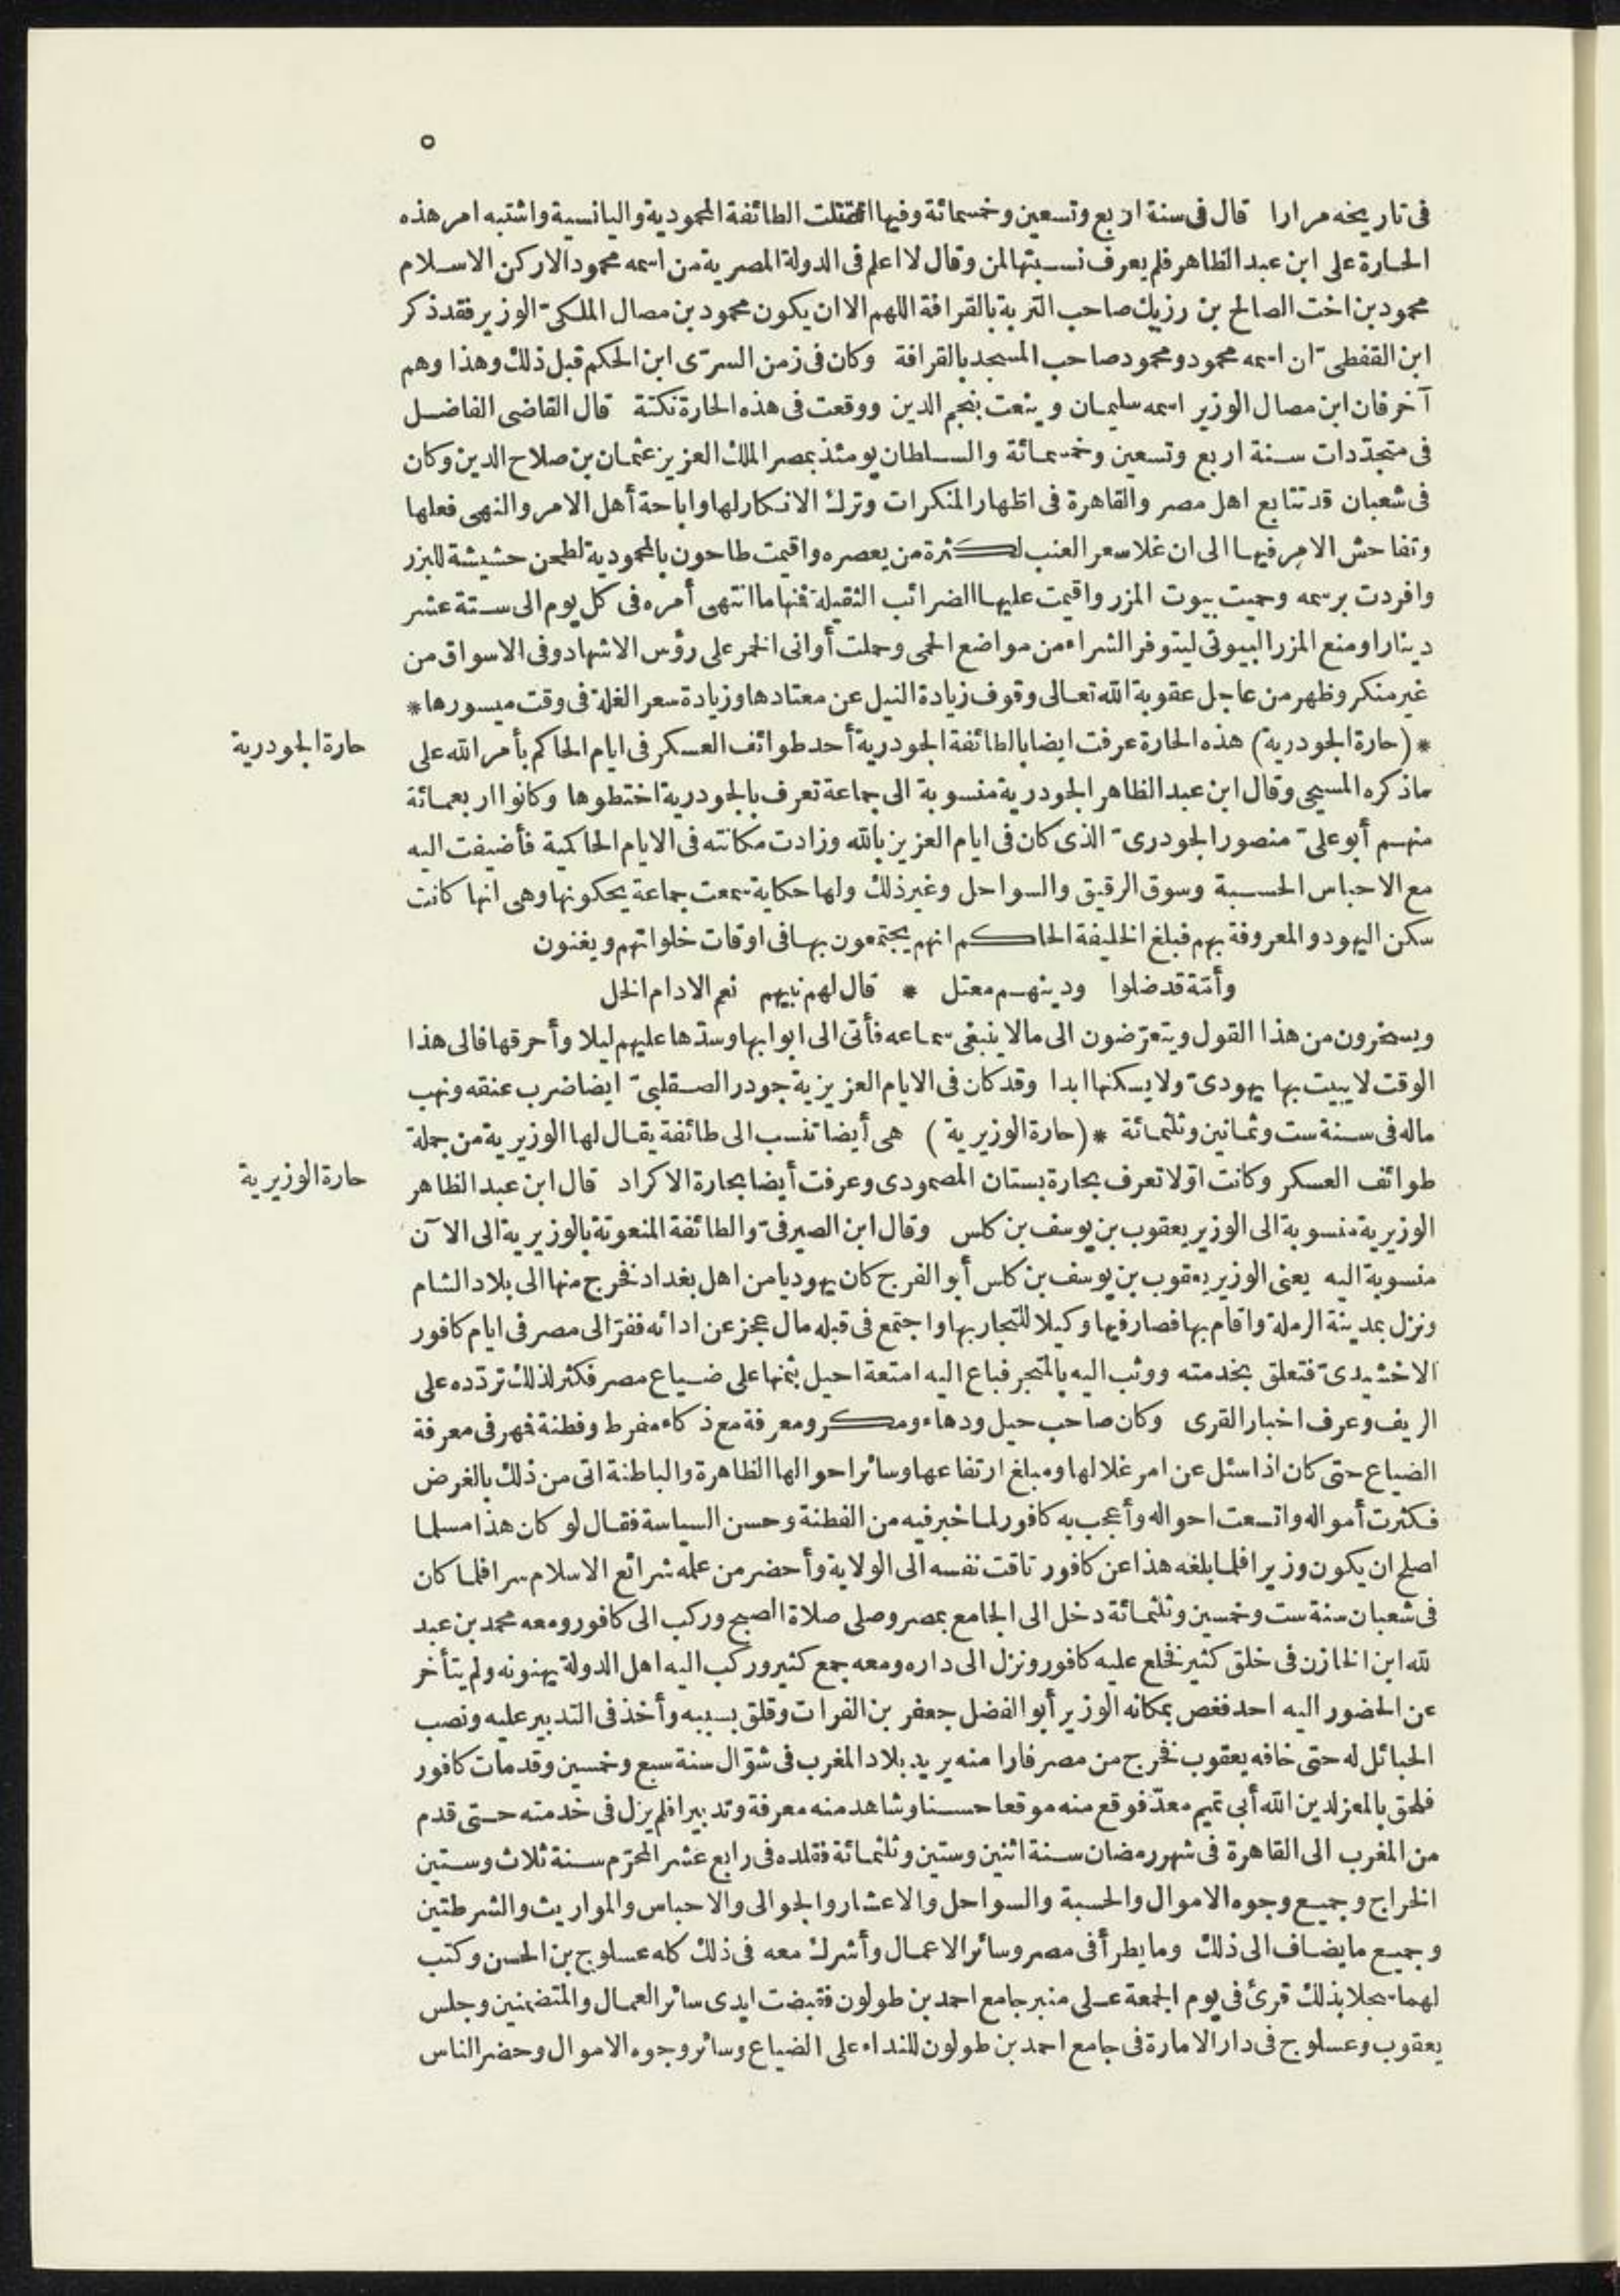 ٥
فى تاريخه مرارا قال فى سنة اربع وتسعين وخمسمائة وفيها اقتتلت الطائفة المحمودية واليانسية واشتبه امر هذه
الحارة على ابن عبد الظاهر فلم يعرف نسبتها لمن وقال لا اعلم فى الدولة المصرية من اسمه محمود الا ركن الاسلام
محمود بن اخت الصالح بن رزيك صاحب التربة بالقرافة اللهم الا ان يكون محمود بن مصال الملكىّ الوزير فقد ذكر
ابن القفطىّ ان اسمه محمود ومحمود صاحب المسجد بالقرافة وكان فى زمن السرّى ابن الحكم قبل ذلك وهذا وهم
آخر فان ابن مصال الوزير اسمه سليمان وينعت بنجم الدين ووقعت فى هذه الحارة نكتة قال القاضى الفاضل
فى متجدّدات سنة اربع وتسعين وخمسمائة والسلطان يومئذ بمصر الملك العزيز عثمان بن صلاح الدين وكان
فى شعبان قد تتابع اهل مصر والقاهرة فى اظهار المنكرات وترك الانكار لها واباحة أهل الامر والنهى فعلها
وتفاحش الامر فيها الى ان غلا سعر العنب لكثرة من يعصره واقيمت طاحون بالمحمودية لطحن حشيشة للبزر
وافردت برسمه وحميت بيوت المزر واقيمت عليها الضرائب الثقيلة فنها ما انتهى أمره فى كل يوم الى ستة عشر
دينارا ومنع المزر البيوتى ليتوفر الشراء من مواضع الحمى وحملت أوانى الخمر على رؤس الاشهاد وفى الاسواق من
غير منكر وظهر من عاجل عقوبة الله تعالى وقوف زيادة النيل عن معتادها وزيادة سعر الغلة فى وقت ميسورها *
* (حارة الجودرية) هذه الحارة عرفت ايضا بالطائفة الجودرية أحد طوائف العسكر فى ايام الحاكم بأمر الله على
حارة الجودرية
ماذكره المسبحى وقال ابن عبد الظاهر الجودرية منسوبة الى جماعة تعرف بالجودرية اختطوها وكانوا اربعمائة
منهم أبو علىّ منصور الجودرىّ الذى كان فى ايام العزيز بالله وزادت مكانته فى الايام الحاكمية فأضيفت اليه
مع الاحباس الحسبة وسوق الرقيق والسواحل وغير ذلك ولها حكاية سمعت جماعة يحكونها وهى انها كانت
سكن اليهود والمعروفة بهم فبلغ الخليفة الحاكم انهم يجتمعون بها فى اوقات خلواتهم ويغنون
وأمّة قد ضلوا ودينهم معتل * قال لهم نبيهم نعم الادام الخل
ويسخرون من هذا القول ويتعرّضون الى مالا ينبغى سماعه فأتى الى ابوابها وسدّها عليهم ليلا وأحرقها فالى هذا
الوقت لا يبيت بها يهودىّ ولا يسكنها ابدا وقد كان فى الايام العزيزية جودر الصقلبىّ ايضا ضرب عنقه ونهب
ماله فى سنة ست وثمانين وثلثمائة * (حارة الوزيرية) هى أيضا تنسب الى طائفة يقال لها الوزيرية من جملة
طوائف العسكر وكانت اوّلا تعرف بحارة بستان المصمودى وعرفت أيضا بحارة الاكراد قال ابن عبد الظاهر
حارة الوزيرية
الوزيرية منسوبة الى الوزير يعقوب بن يوسف بن كلس وقال ابن الصيرفىّ والطائفة المنعوتة بالوزيرية الى الآن
منسوبة اليه يعنى الوزير يعقوب بن يوسف بن كلس أبو الفرج كان يهوديا من اهل بغداد فخرج منها الى بلاد الشام
ونزل بمدينة الرملة واقام بها فصار فيها وكيلا للتجار بها واجتمع فى قبله مال عجز عن ادائه ففرّ الى مصر فى ايام كافور
الاخشيدىّ فتعلق بخدمته ووثب اليه بالمتجر فباع اليه امتعة احيل بثمنها على ضياع مصر فكثر لذلك تردّده على
الريف وعرف اخبار القرى وكان صاحب حيل ودهاء ومكر ومعرفة مع ذكاء مفرط وفطنة فمهر فى معرفة
الضياع حتى كان اذا سئل عن امر غلالها ومبلغ ارتفاعها وسائر احوالها الظاهرة والباطنة اتى من ذلك بالغرض
فكثرت أمواله واتسعت احواله وأعجب به كافور لما خبر فيه من الفطنة وحسن السياسة فقال لو كان هذا مسلما
اصلح ان يكون وزيرا فلما بلغه هذا عن كافور تاقت نفسه الى الولاية وأحضر من علمه شرائع الاسلام سرا فلما كان
فى شعبان سنة ست وخمسين وثلثمائة دخل الى الجامع بمصر وصلى صلاة الصبح وركب الى كافور ومعه محمد بن عبد
لله ابن الخازن فى خلق كثير فخلع عليه كافور ونزل الى داره ومعه جمع كثير وركب اليه اهل الدولة يهنونه ولم يتأخر
عن الحضور اليه احد فغص بمكانه الوزير أبو الفضل جعفر بن الفرات وقلق بسببه وأخذ فى التدبير عليه ونصب
الحبائل له حتى خافه يعقوب فخرج من مصر فارا منه يريد بلاد المغرب فى شوّال سنة سبع وخمسين وقد مات كافور
فلحق بالمعز لدين الله أبى تميم معدّ فوقع منه موقعا حسنا وشاهد منه معرفة وتدبيرا فلم يزل فى خدمته حتى قدم
من المغرب الى القاهرة فى شهر رمضان سنة اثنين وستين وثلثمائة فقلده فى رابع عشر المحرّم سنة ثلاث وستين
الخراج وجميع وجوه الاموال والحسبة والسواحل والاعشار والجوالى والاحباس والمواريث والشرطتين
وجميع ما يضاف الى ذلك وما يطرأ فى مصر وسائر الاعمال وأشرك معه فى ذلك كله عسلوج بن الحسن وكتب
لهما سجلا بذلك قرئ فى يوم الجمعة على منبر جامع احمد بن طولون فقبضت ايدى سائر العمال والمتضمنين وجلس
يعقوب وعسلوج فى دار الامارة فى جامع احمد بن طولون للنداء على الضياع وسائر وجوه الاموال وحضر الناس